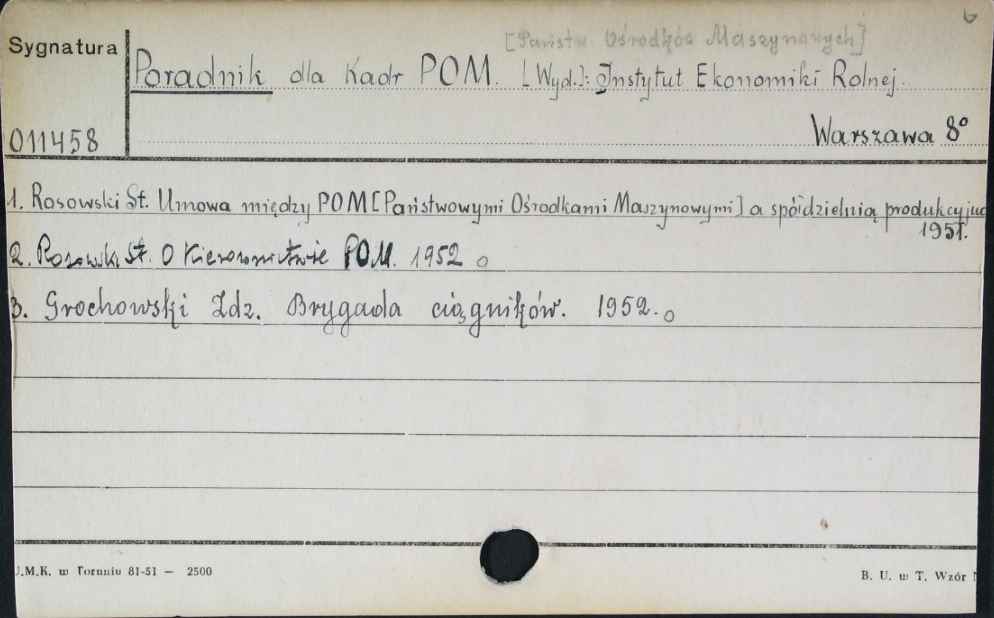 6
[Państw. Ośrodków Maszynowych]
Sygnatura
Poradnik dla Kadr POM. [Wyd.]: Instytut Ekonomiki Rolnej.
011458
Warszawa 8°
1. Rosowski St. Umowa między POM [Państwowymi Ośrodkami Maszynowymi] a spółdzielnią produkcyjną
1951.
2. Rosowski St. O Kierownictwie POM. 1952 o
3. Grochowski Zdz. Brygada ciągników. 1952. o
U.M.K. w Toruniu 81-51 — 2500
B. U. w T. Wzór